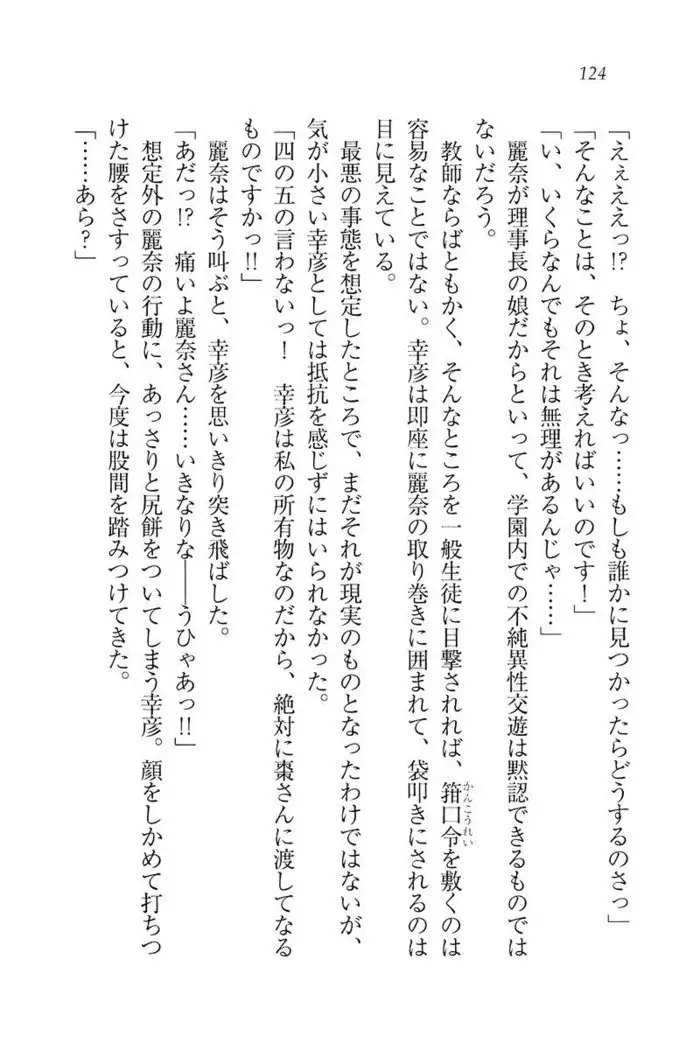 124
「えぇええっ!?　ちょ、そんなっ……もしも誰かに見つかったらどうするのさっ」
「そんなことは、そのとき考えればいいのです！」
「い、いくらなんでもそれは無理があるんじゃ……」
麗奈が理事長の娘だからといって、学園内での不純異性交遊は黙認できるものでは
ないだろう。
教師ならばともかく、そんなところを一般生徒に目撃されれば、箝口令を敷くのは
かんこうれい
容易なことではない。幸彦は即座に麗奈の取り巻きに囲まれて、袋叩きにされるのは
目に見えている。
最悪の事態を想定したところで、まだそれが現実のものとなったわけではないが、
気が小さい幸彦としては抵抗を感じずにはいられなかった。
「四の五の言わないっ！　幸彦は私の所有物なのだから、絶対に棗さんに渡してなる
ものですかっ!!」
麗奈はそう叫ぶと、幸彦を思いきり突き飛ばした。
「あだっ!?　痛いよ麗奈さん……いきなりな――うひゃあっ!!」
想定外の麗奈の行動に、あっさりと尻餅をついてしまう幸彦。顔をしかめて打ちつ
けた腰をさすっていると、今度は股間を踏みつけてきた。
「……あら？」